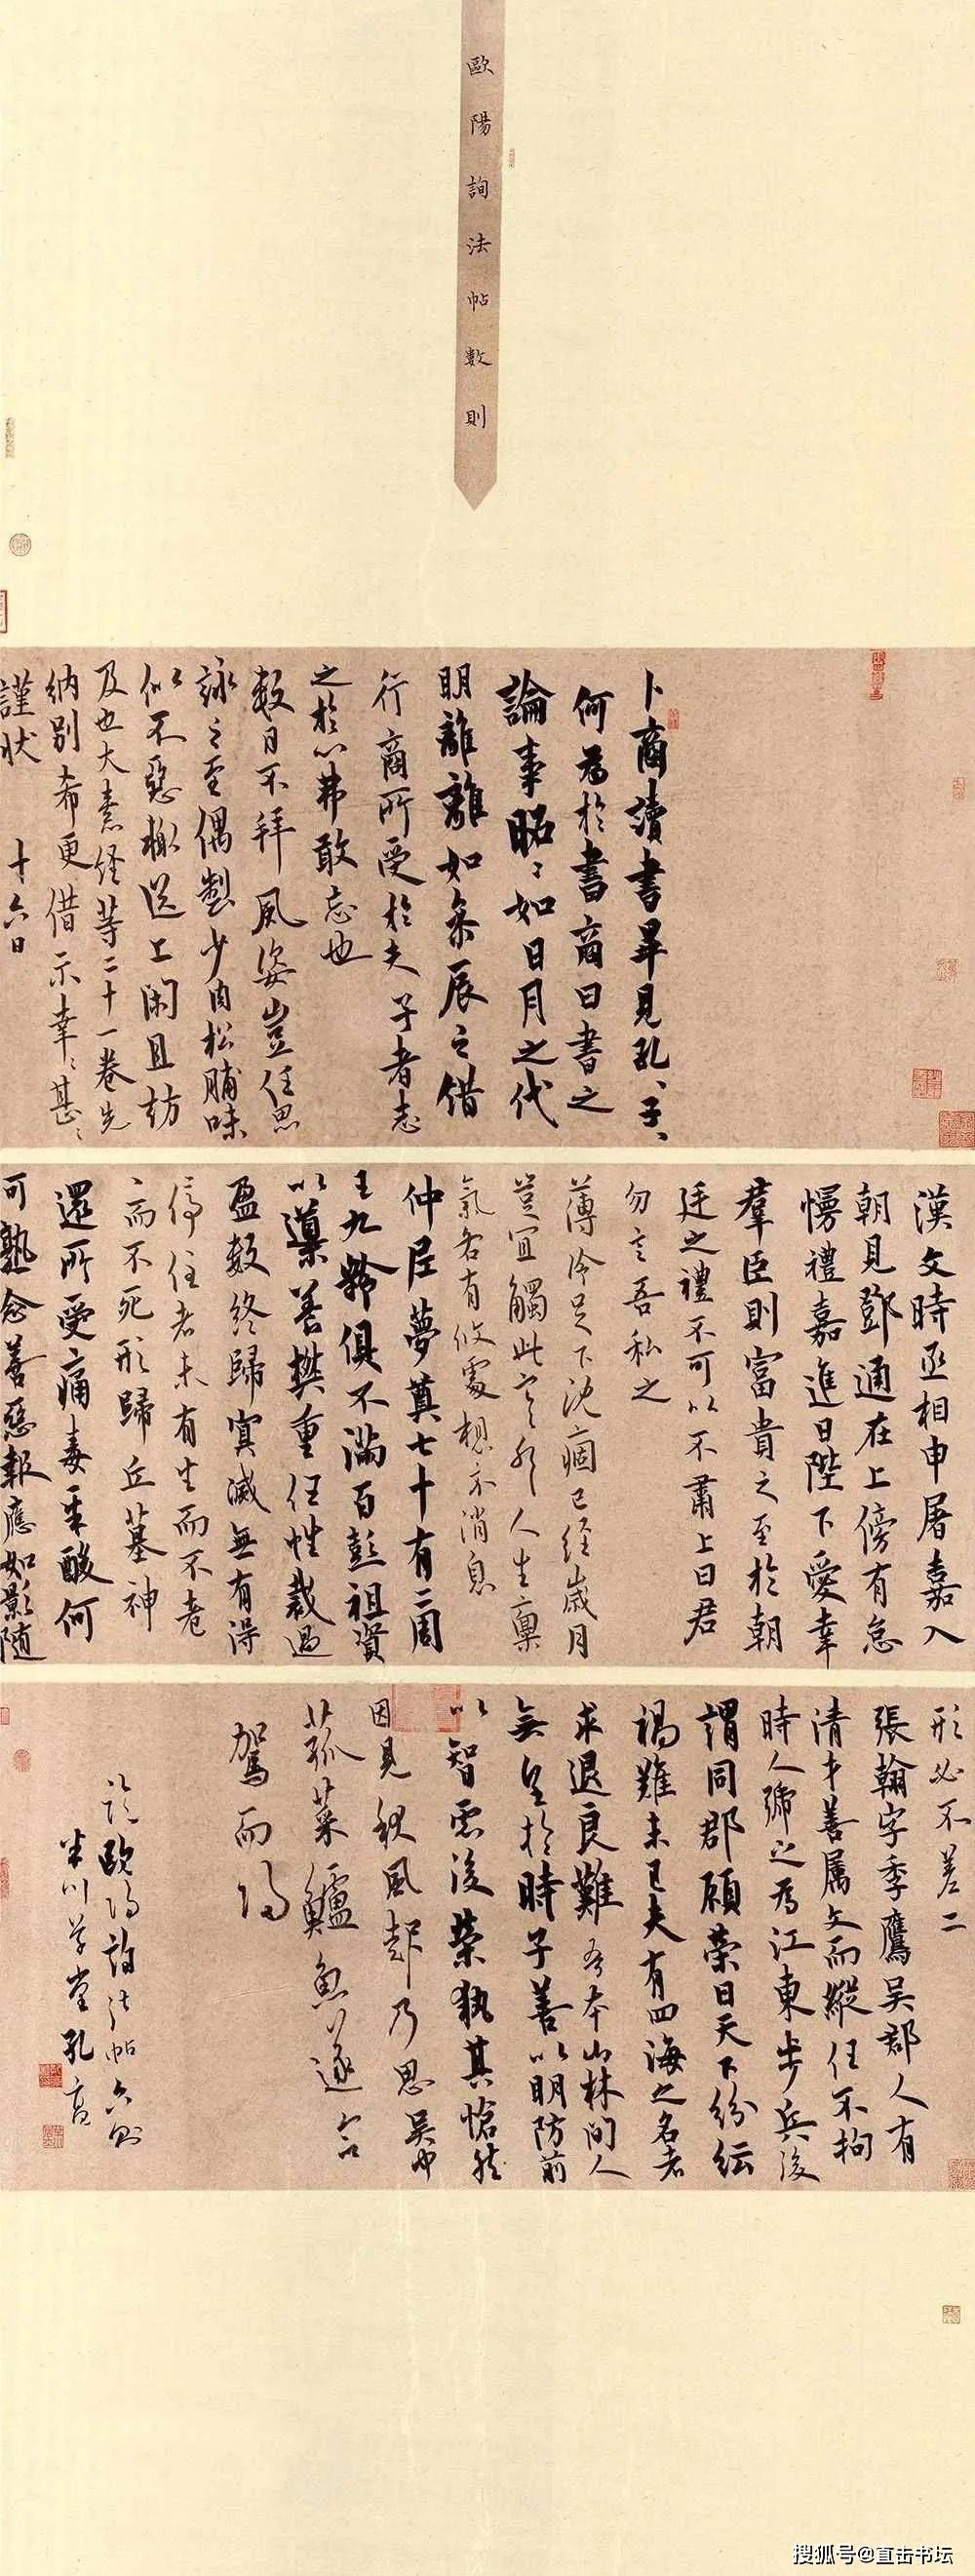 歐陽詢法帖數則
卜商讀書畢見孔〻子〻
何為於書商曰書之
論事昭〻如日月之代
明離離如參辰之錯
行商所受於夫子者志
之於心弗敢忘也
數日不拜風姿豈任思
詠之至偶製少肉松脯味
似不惡楸送上閑且訪
及也大素經等二十一卷先
納別希更借示幸〻甚〻
謹狀 十六日
漢文時丞相申屠嘉入
朝見鄧通在上傍有怠
慢禮嘉進曰陛下愛幸
羣臣則富貴之至於朝
廷之禮不可以不肅上曰君
勿言吾私之
薄冷足下沈痼已經歲月
豈宜觸此人生稟
氣各有攸處想示消息
仲尼夢奠七十有二周
王九齡俱不滿百彭祖資
以導養樊重任性裁過
盈數終歸冥滅無有得
停住者未有生而不老
〻而不死形歸丘墓神
還所受痛毒辛酸何
可熟念善惡報應如影隨
形必不差二
張翰字季鷹吳郡人有
清才善属文而縱任不拘
時人號之為江東步兵後
謂同郡顧榮曰天下紛紜
禍難未已夫有四海之名者
求退良難吾本山林間人
無望於時子善以明防前
以智慮後榮執其愴然
因見秋風起乃思吳中
菰菜鱸魚遂命
駕而歸
臨歐陽詢法帖六則
半川草堂孔
搜狐号@直击书坛